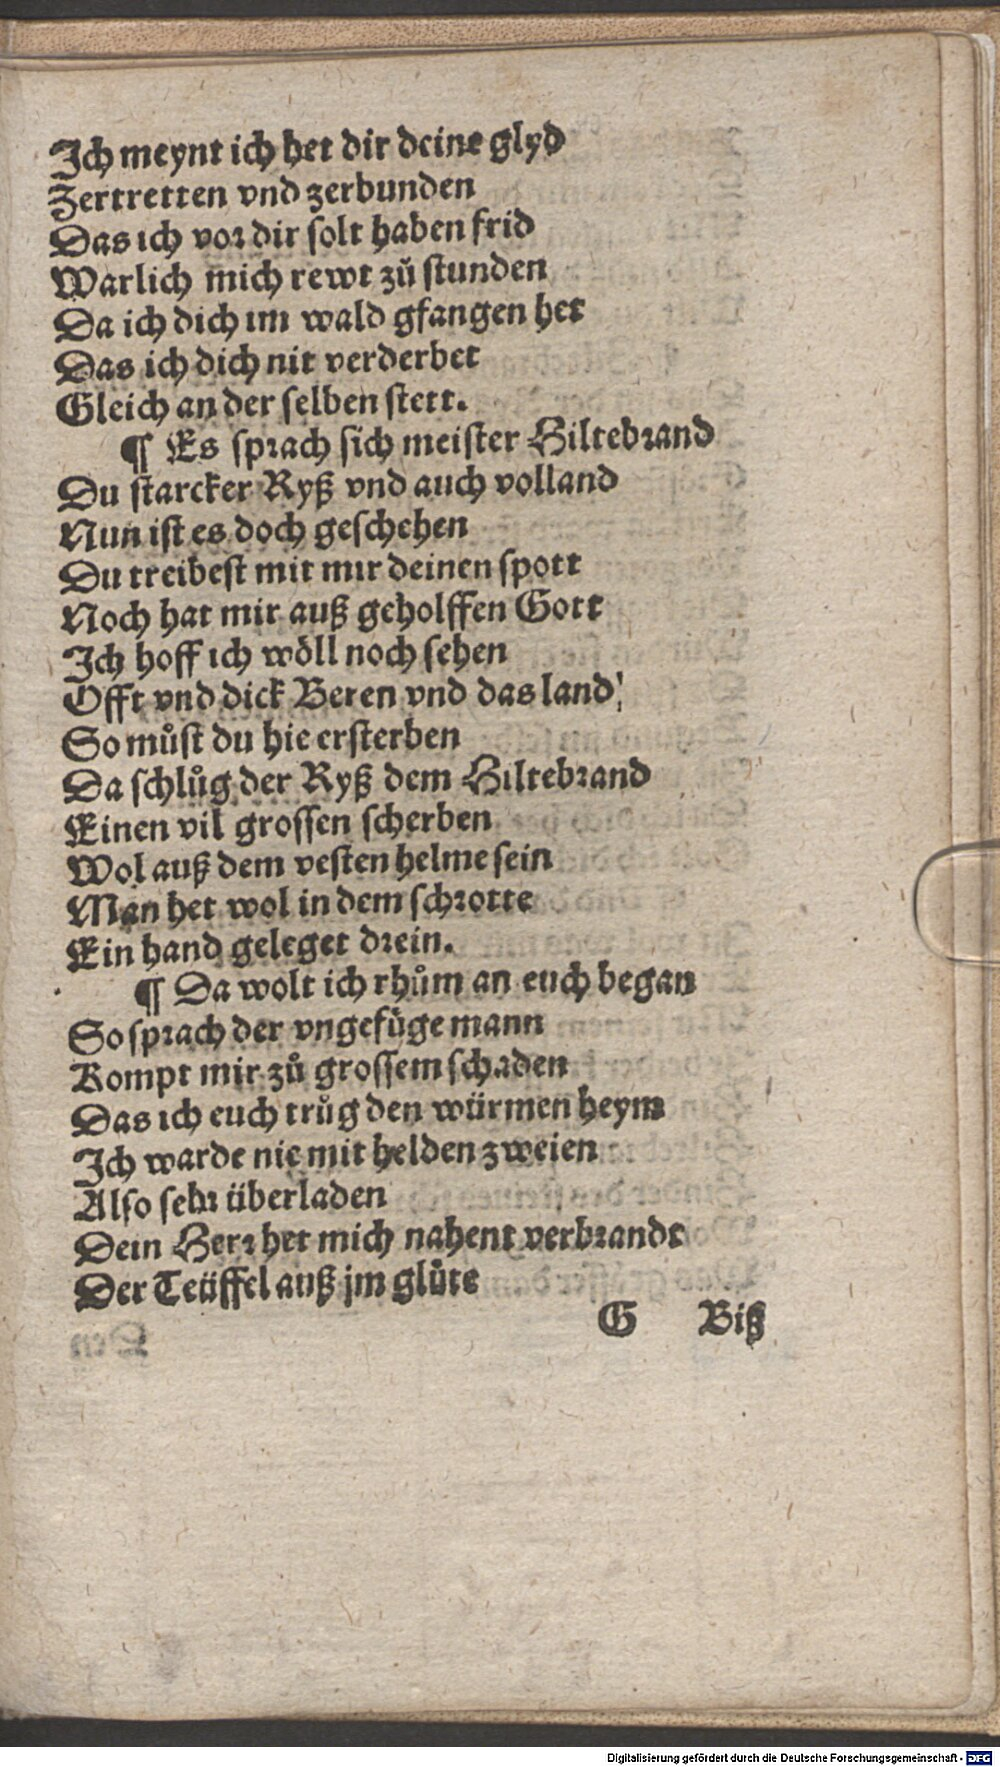 Ich meynt ich het dir deine glyd
Zertretten vnd zerbunden
Das ich vor dir solt haben frid
Warlich mich rewt zů stunden
Da ich dich im wald gfangen het
Das ich dich nit verderbet
Gleich an der selben stett.
¶ Es sprach sich meister Hiltebrand
Du starcker Ryß vnd auch volland
Nun ist es doch geschehen
Du treibest mit mir deinen spott
Noch hat mir auß geholffen Gott
Ich hoff ich wöll noch sehen
Offt vnd dick Beren vnd das land
So můst du hie ersterben
Da schlůg der Ryß dem Hiltebrand
Einen vil grossen scherben
Wol auß dem vesten helme sein
Man het wol in dem schrotte
Ein hand geleget drein.
¶ Da wolt ich rhům an euch began
So sprach der vngefüge mann
Kompt mir zů grossem schaden
Das ich euch trůg den würmen heym
Ich warde nie mit helden zweien
Also sehr überladen
Dein Herr het mich nahent verbrandt
Der Teüffel auß jm glüte
G Biß
Digitalisierung gefördert durch die Deutsche Forschungsgemeinschaft - DFG